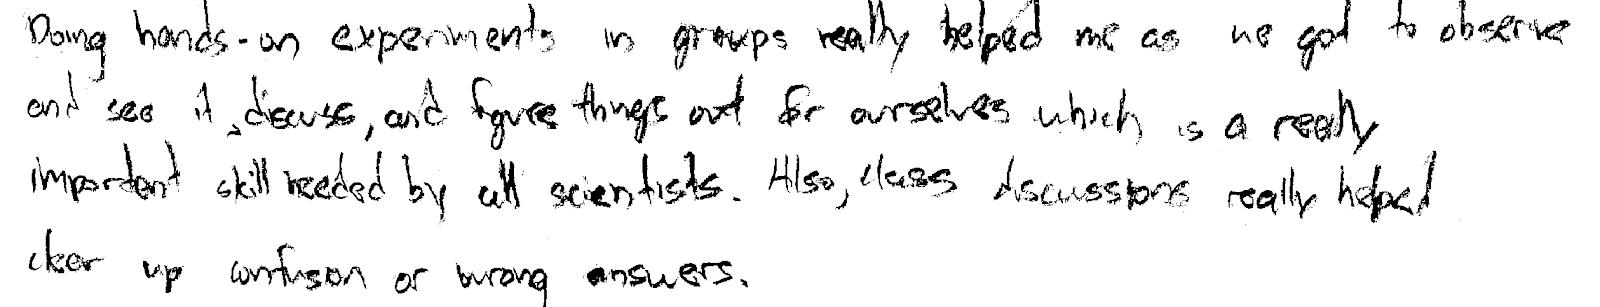 Doing hands-on experiments in groups really helped me as we got to observe
and see it, discuss, and figure things out for ourselves which is a really
important skill needed by all scientists. Also, class discussions really helped
clear up confusion or wrong answers.